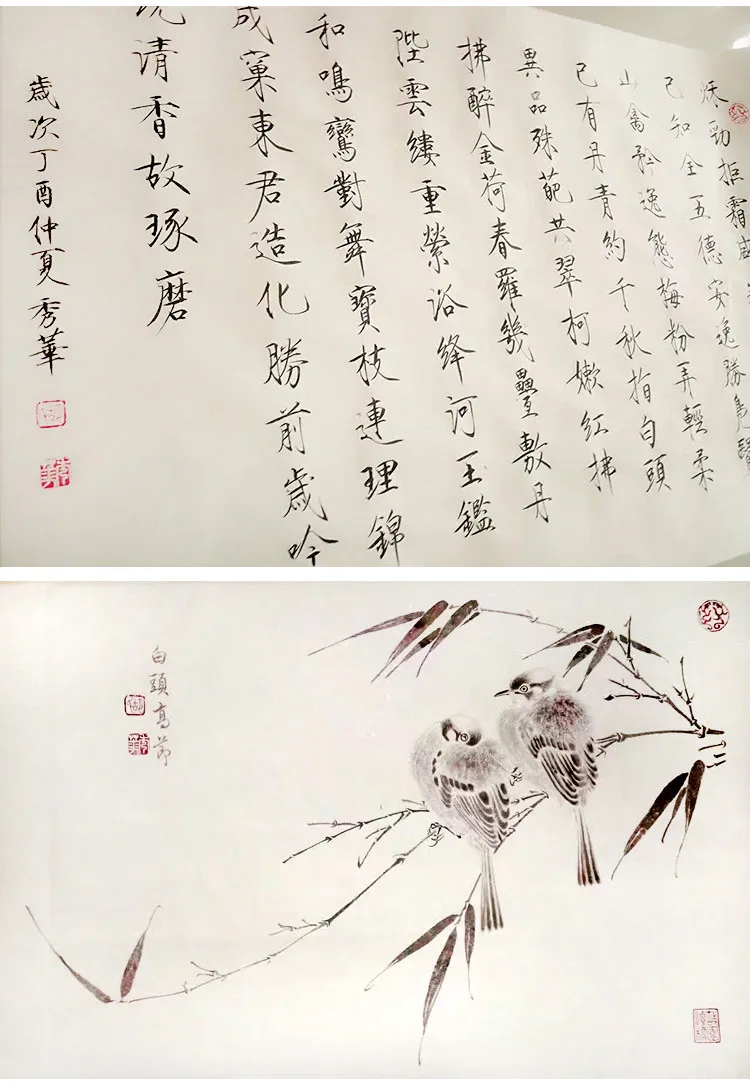 秋勁拒霜盛
已知全五德安逸勝鳧鷖
山禽矜逸態梅粉弄輕柔
已有丹青約千秋指白頭
異品殊葩共翠柯嫩紅拂
拂醉金荷春羅幾疊敷丹
陛雲縷重縈浴絳河玉鑑
和鳴鸞對舞寶枝連理錦
成菓東君造化勝前歲吟
清香故琢磨
歲次丁酉仲夏秀華
白頭高節